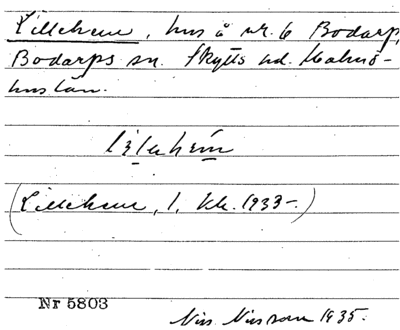 Lillehem, hus å nr. 6 Bodarp,
Bodarps sn. Skytts hd. Malmö-
hus län.
lilahem
(Lillehem, l. kk. 1933-.)
Nr 5803
Nils Nilsson 1935.